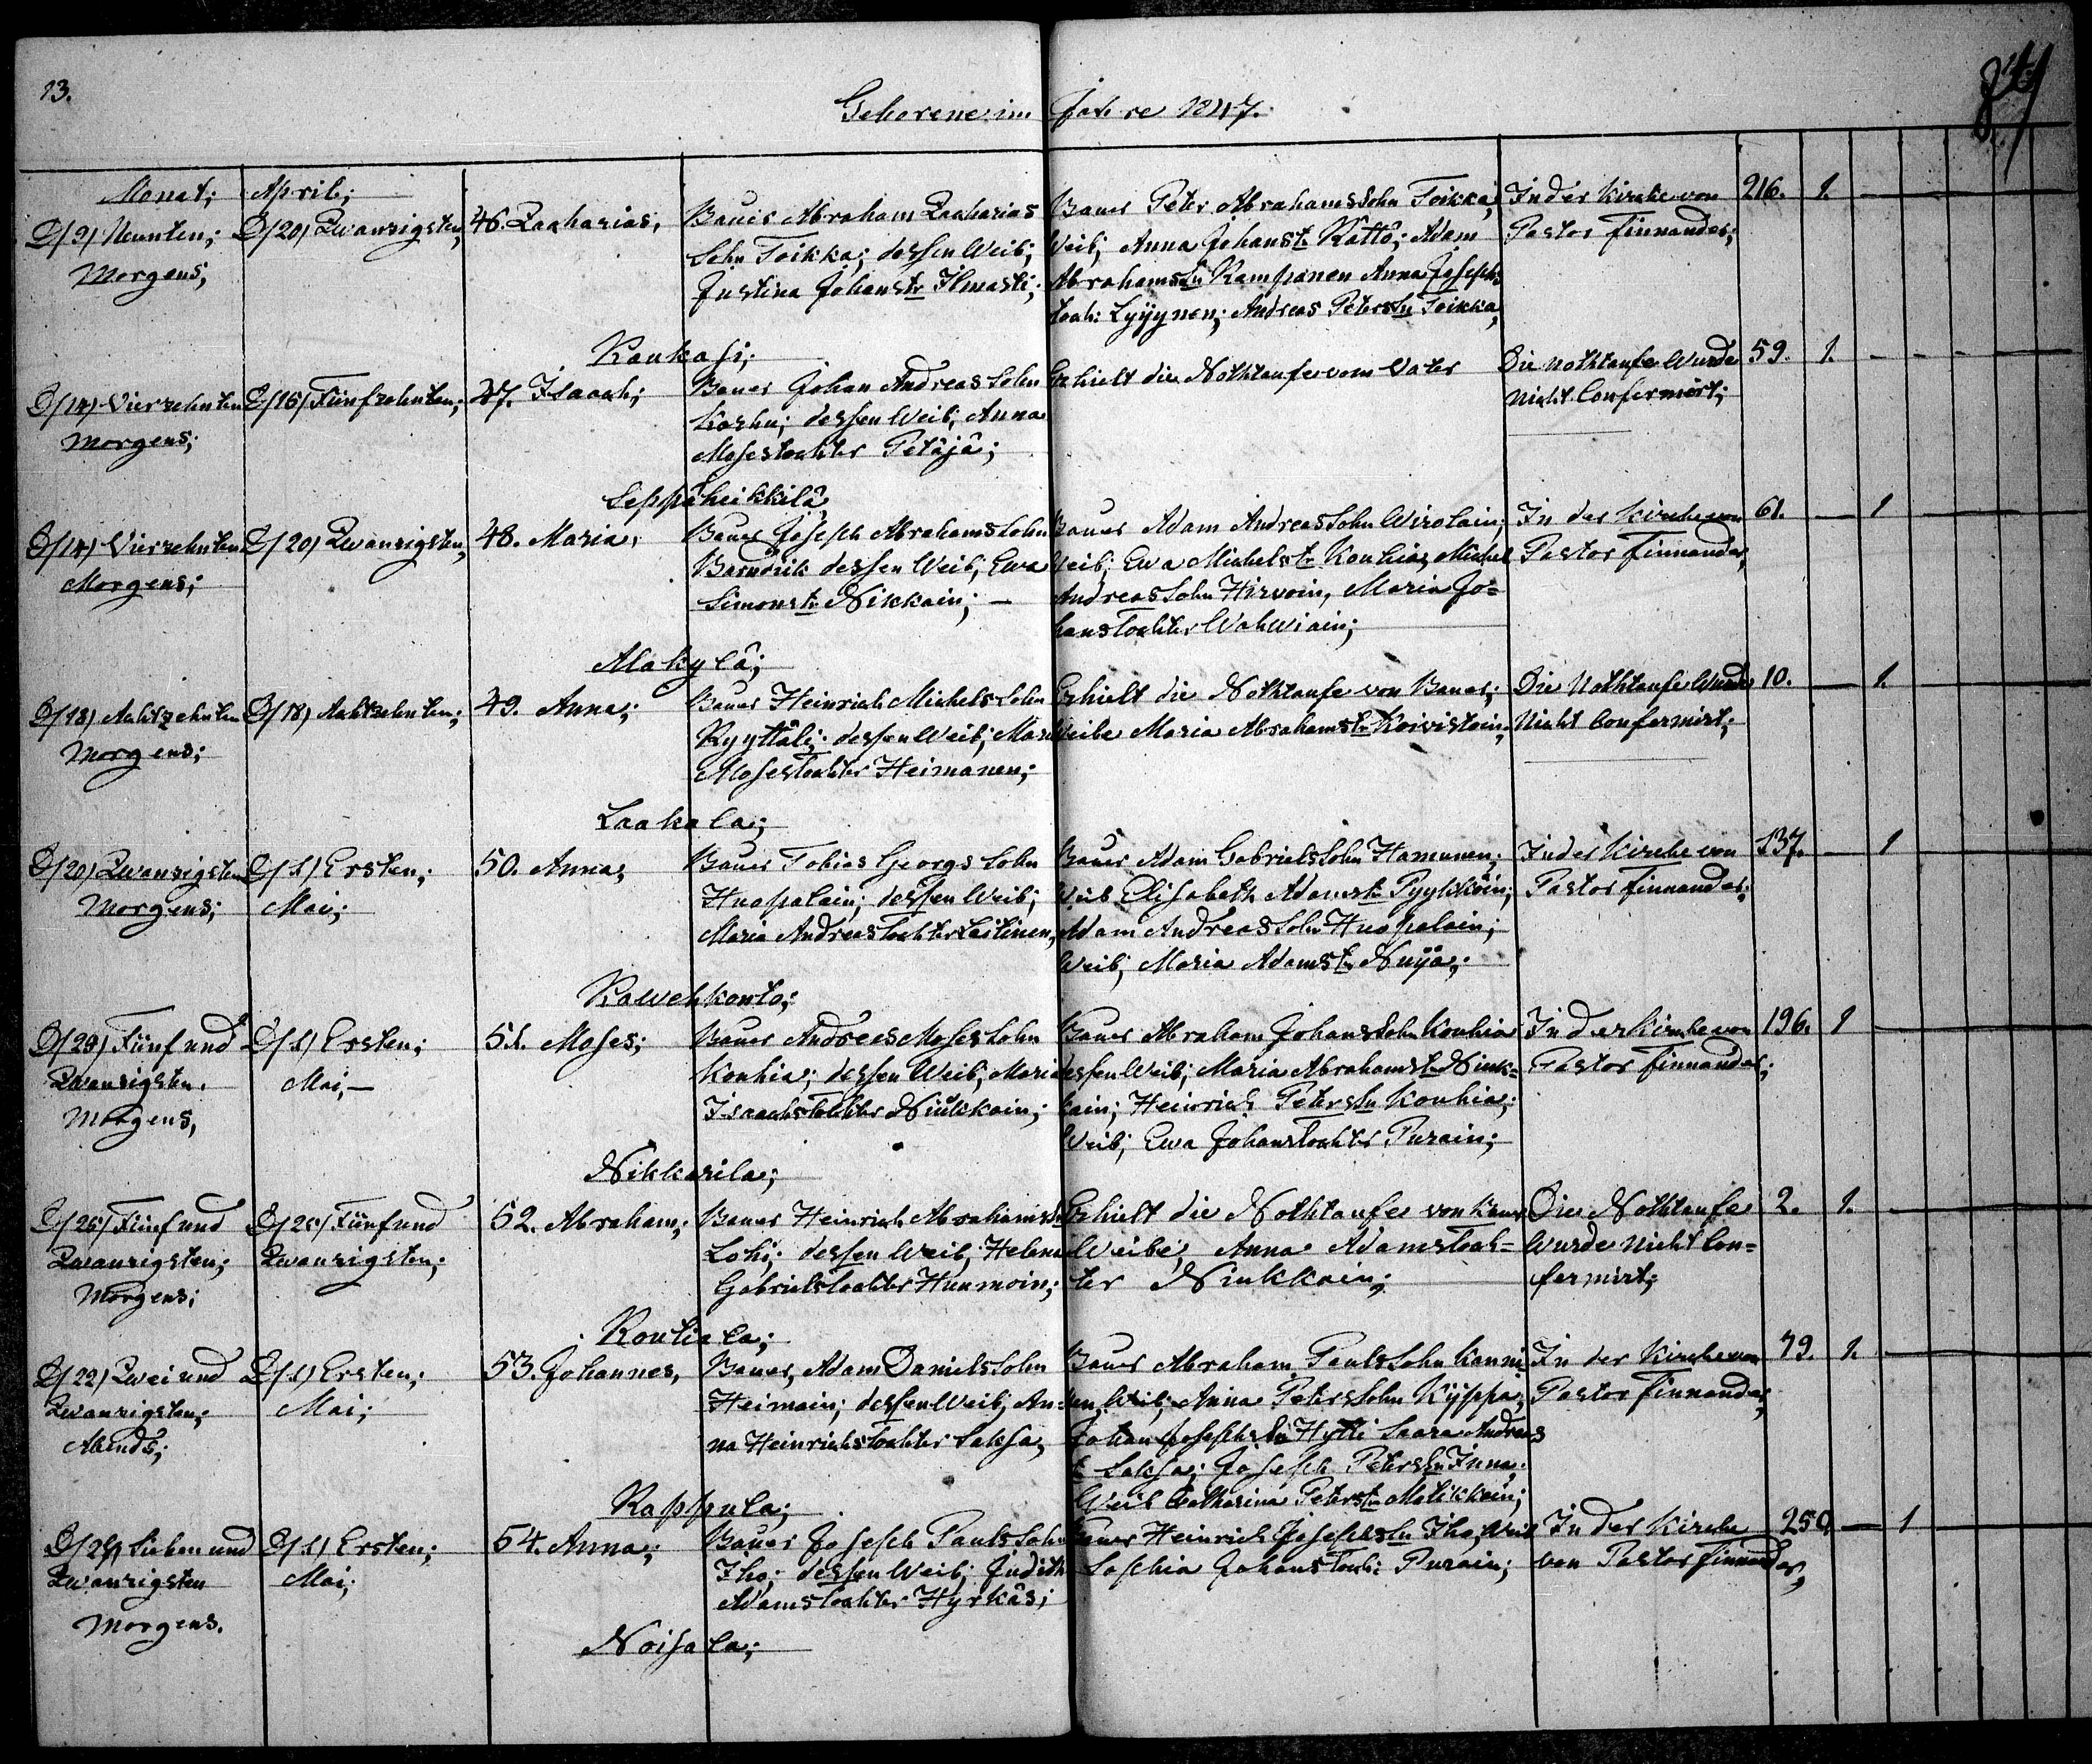 13.
Geborene im Jahre 1847.
Monat; April;
D/9/ Neunten; D/20/ Zwanzigsten, 46. Zacharias, Bauer Abraham Zacharias Bauer Peter Abrahamssohn Toikka, In der Kirche von 216. 1.
Morgens; Sohn Toikka; dessen Weib; Weib; Anna Johanstr Rättö; Adam Pastor Finnander;
Justina Johanstr Ilmasti; Abrahamssn Kamponen Anna Josephs
toch: Lyijynen; Andreas Peterssn Toikka,
Raukasi;
D/14/ Vierzehnten D/15/ Fünfzehnten; 47. Isaach; Bauer Johan Andreas Sohn Erhielt die Nothtaufe vom Vater Die Nothtaufe Wurde 59. 1.
Morgens; Koshu; dessen Weib; Anna Nicht Confermirt;
Mosestochter Petäjä;
Seppäheikkilä
D/14/ Vierzehnten D/20/ Zwanzigsten, 48. Maria, Bauer Joseph Abrahamssohn Bauer Adam Andreassohn Wirolain; In der Kirche von 61. 1
Morgens; dessen Weib; Ewa Weib; Ewa Michelstr Kouhia; Michel Pastor Finnander,
Simonstr Nikkain; Andreassohn Hirvoin, Maria Jo=
hanstochter Wahwiain;
Alakylä;
D/18/ Achtzehnten D/18/ Achtzehnten; 49. Anna; Bauer Heinrich Michelssohn Erhielt die Nothtaufe von Bauer; Die Nothtaufe Wurde 10. 1.
Morgens; Ryyttäli; dessen Weib; Mari Weibe Maria Abrahamstr Koivistoin; Nicht Confermirt;
Mosestochter Heimanen;
Laakala;
D/20/ Zwanzigsten D/1/ Ersten; 50. Anna; Bauer Tobias Georgs Sohn Bauer Adam Gabrielssohn Hamunen; In der Kirche von 137. 1
Morgens; Mai; Huopalain; dessen Weib; Weib Elisabeth Adamstr Pyykköin; Pastor Finnander;
Maria Andreastochter Laitinen, Adam Andreassohn Huopalain;
Weib; Maria Adamstr Nuija;
Rawehkonto;
D/25/ Fünf und D/1/ Ersten; 51. Moses; Bauer Andreas Moses Sohn Bauer Abraham Johanssohn Kouhia In der Kirche von 196. 1
Zwanzigsten. Mai; Kouhia; dessen Weib; Maria dessen Weib; Maria Abrahamstr Niuk= Pastor Finnander;
Morgens, Isaachstochter Niukkain; kain; Heinrich Peterssn Kouhia;
Weib; Ewa Johanstochter Purain;
Nikkarila;
D/25/ Fünf und D/25/ Fünf und 52. Abraham; Bauer Heinrich Abrahamssn Erhielt die Nothtaufe von Bauer Die Nothtaufe 2. 1.
Zwanzigsten; Zwanzigsten; Lohi; dessen Weib; Helena Weibe; Anna Adamstoch= Wurde Nicht Con=
Morgens; Gabrielstochter Hunmoin; ter Niukkain; fermirt;
Routiala;
D/22/ Zwei und D/1/ Ersten; 53. Johannes, Bauer, Adam Danielssohn Bauer Abraham Paulssohn Kanni In der Kirche von 79. 1.
Zwanzigsten; Mai; Heimain; dessen Weib; An= nen, Weib; Anna Peterssohn Kyppa; Pastor Finnander,
Abends; na Heinrichstochter Saksa; Johan Josephssn Hytti Saara Andreas
tr Saksa; Joseph Peterssn Inna;
Rappula; Weib Catharina Peterstr Matikkain;
D/27/ Sieben und D/1/ Ersten; 54. Anna; Bauer Joseph Paulssohn Bauer Heinrich Josephssn Iho; Weib In der Kirche 250. 1
Zwanzigsten Mai; Iho; dessen Weib; Judith Sophia Johanstoch: Purain; von Pastor Finnander,
Morgens. Adamstochter Hyrkäs;
Noisala;